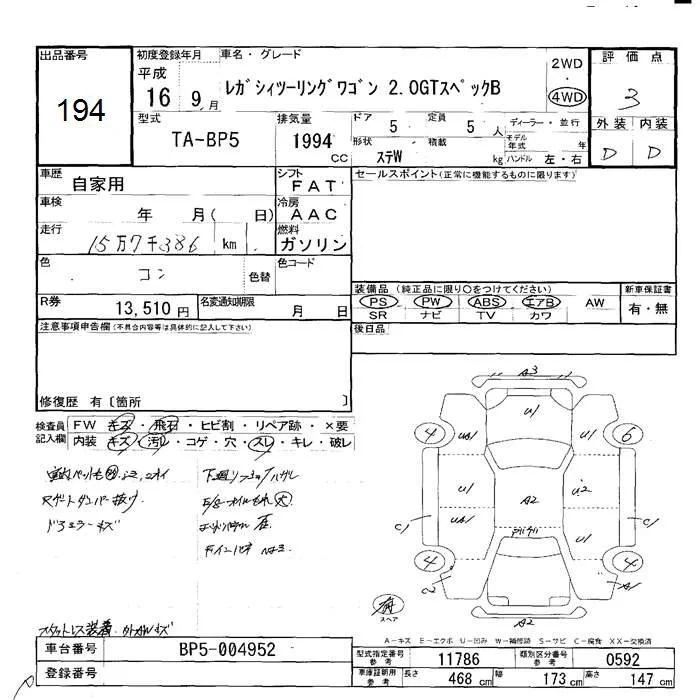 出品番号
194
初度登録年月
平成
16 9月
車名・グレード
レガシィツーリングワゴン 2.0GTスペックB
2WD
・
4WD
評価点
3
外装 内装
D D
型式
TA-BP5
排気量
1994
CC
ドア
5
定員
5 人
ディーラー・並行
モデル年式 年
形状
ステW
積載
kg
ハンドル 左・右
車歴
自家用
シフト
FAT
車検
年 月( 日)
冷房
AAC
走行
15万7千386 km
燃料
ガソリン
色
コン
色替
色コード
R券
13,510 円
名変通知期限
月 日
セールスポイント(正常に機能するものに限ります)
装備品 (純正品に限り〇をつけてください)
新車保証書
PS PW ABS エアB AW
有・無
SR ナビ TV カワ
後日品
注意事項申告欄(不具合内容等は具体的に記入して下さい)
修復歴 有〔箇所 〕
検査員記入欄
FW キズ・飛石・ヒビ割・リペア跡・×要
内装 キズ・汚レ・コゲ・穴・スレ・キレ・破レ
A3
U1
4
6
U1
U2
A2
C1
C1
U1
4
4
C2
A1
A2
スペア
スタットレス装着
A－キズ E－エクボ U－凹み W－補修跡 S－サビ C－腐食 XX－交換済
車台番号
BP5-004952
登録番号
型式指定番号
参考
11786
類別区分番号
参考
0592
車庫証明用
参考
長さ
468 cm
幅
173 cm
高さ
147 cm